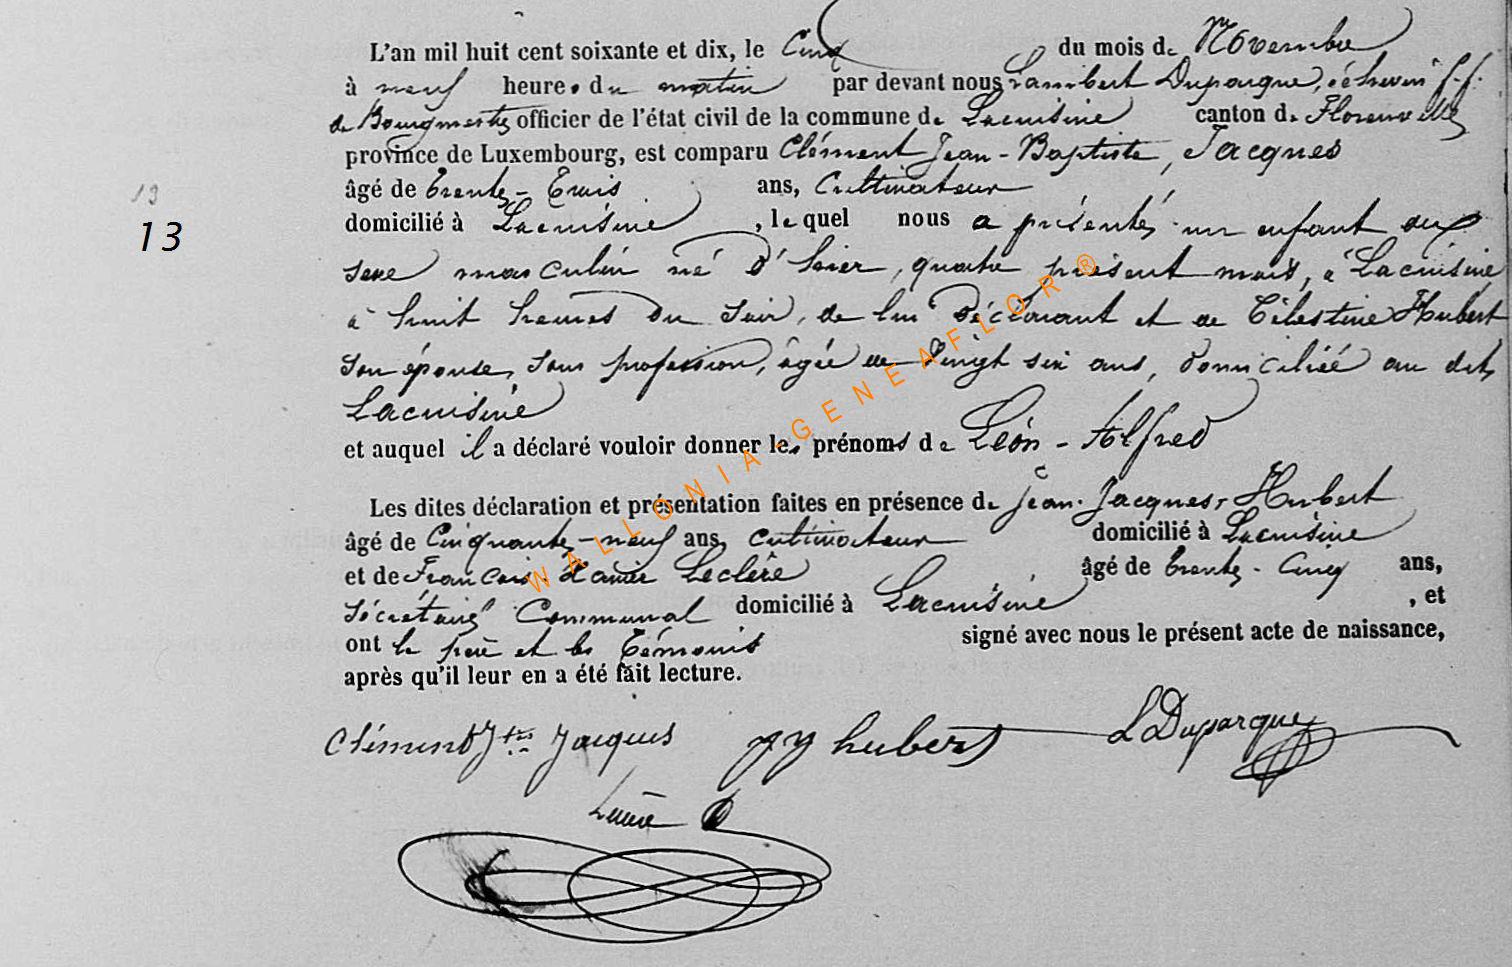 L'an mil huit cent soixante et dix, le Cinq du mois de Novembre
à neuf heures du matin par devant nous Lambert Duparque, échevin f.f.
de Bourgmestre officier de l'état civil de la commune de Lacuisine canton de Florenville
province de Luxembourg, est comparu Clément Jean-Baptiste, Jacques
19
âgé de trente-Trois ans, Cultivateur
13
domicilié à Lacuisine, lequel nous a présenté un enfant du
sexe masculin né d'hier, quatre présent mois, à Lacuisine
à huit heures du soir, de lui déclarant et de Célestine Hubert
son épouse, sans profession, âgée de vingt six ans, domiciliée au dit
Lacuisine
et auquel il a déclaré vouloir donner les prénoms de Léon-Alfred
Les dites déclaration et présentation faites en présence de Jean-Jacques, Hubert
âgé de Cinquante-neuf ans, cultivateur domicilié à Lacuisine
et de François Xavier Leclère âgé de trente-Cinq ans,
Secrétaire Communal domicilié à Lacuisine, et
ont le père et les témoins signé avec nous le présent acte de naissance,
après qu'il leur en a été fait lecture.
Clément J Jacques JJ hubert L Duparque
WALLONIA-GENEAFLOR®